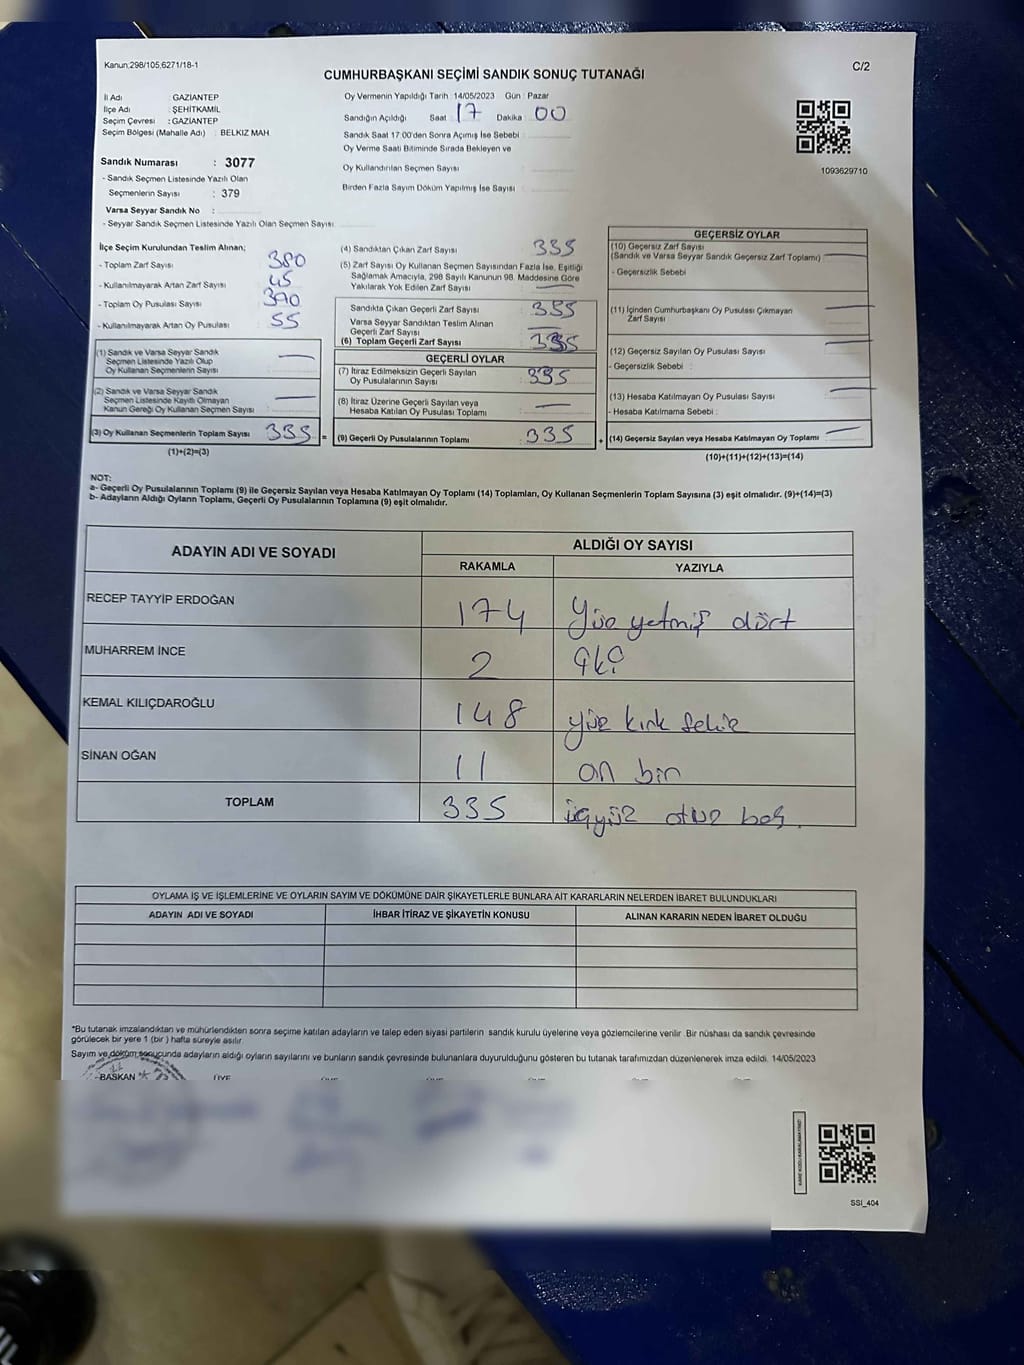 Kanun;298/105,6271/18-1
CUMHURBAŞKANI SEÇİMİ SANDIK SONUÇ TUTANAĞI
C/2
İl Adı : GAZİANTEP
İlçe Adı : ŞEHİTKAMİL
Seçim Çevresi : GAZİANTEP
Seçim Bölgesi (Mahalle Adı) : BELKIZ MAH
Sandık Numarası : 3077
- Sandık Seçmen Listesinde Yazılı Olan
Seçmenlerin Sayısı : 379
Varsa Seyyar Sandık No :
- Seyyar Sandık Seçmen Listesinde Yazılı Olan Seçmen Sayısı
Oy Vermenin Yapıldığı Tarih : 14/05/2023 Gün : Pazar
Sandığın Açıldığı Saat 17 Dakika : 00
Sandık Saat 17:00'den Sonra Açımış İse Sebebi :
Oy Verme Saati Bitiminde Sırada Bekleyen ve
Oy Kullandırılan Seçmen Sayısı :
Birden Fazla Sayım Döküm Yapılmış İse Sayısı :
1093629710
İlçe Seçim Kurulundan Teslim Alınan;
- Toplam Zarf Sayısı : 380
- Kullanılmayarak Artan Zarf Sayısı : 45
- Toplam Oy Pusulası Sayısı : 390
- Kullanılmayarak Artan Oy Pusulası : 55
(1) Sandık ve Varsa Seyyar Sandık
Seçmen Listesinde Yazılı Olup
Oy Kullanan Seçmenlerin Sayısı : —
(2) Sandık ve Varsa Seyyar Sandık
Seçmen Listesinde Kayıtlı Olmayan
Kanun Gereği Oy Kullanan Seçmen Sayısı : —
(3) Oy Kullanan Seçmenlerin Toplam Sayısı 335 =
(1)+(2)=(3)
(4) Sandıktan Çıkan Zarf Sayısı : 335
(5) Zarf Sayısı Oy Kullanan Seçmen Sayısından Fazla İse, Eşitliği
Sağlamak Amacıyla, 298 Sayılı Kanunun 98. Maddesine Göre
Yakılarak Yok Edilen Zarf Sayısı : —
Sandıkta Çıkan Geçerli Zarf Sayısı : 335
Varsa Seyyar Sandıktan Teslim Alınan
Geçerli Zarf Sayısı : —
(6) Toplam Geçerli Zarf Sayısı : 335
GEÇERLİ OYLAR
(7) İtiraz Edilmeksizin Geçerli Sayılan
Oy Pusulalarının Sayısı : 335
(8) İtiraz Üzerine Geçerli Sayılan veya
Hesaba Katılan Oy Pusulası Toplamı : —
(9) Geçerli Oy Pusulalarının Toplamı : 335 +
GEÇERSİZ OYLAR
(10) Geçersiz Zarf Sayısı
(Sandık ve Varsa Seyyar Sandık Geçersiz Zarf Toplamı) : —
- Geçersizlik Sebebi :
(11) İçinden Cumhurbaşkanı Oy Pusulası Çıkmayan
Zarf Sayısı : —
(12) Geçersiz Sayılan Oy Pusulası Sayısı : —
- Geçersizlik Sebebi :
(13) Hesaba Katılmayan Oy Pusulası Sayısı : —
- Hesaba Katılmama Sebebi :
(14) Geçersiz Sayılan veya Hesaba Katılmayan Oy Toplamı : —
(10)+(11)+(12)+(13)=(14)
NOT:
a- Geçerli Oy Pusulalarının Toplamı (9) ile Geçersiz Sayılan veya Hesaba Katılmayan Oy Toplamı (14) Toplamları, Oy Kullanan Seçmenlerin Toplam Sayısına (3) eşit olmalıdır. (9)+(14)=(3)
b- Adayların Aldığı Oyların Toplamı, Geçerli Oy Pusulalarının Toplamına (9) eşit olmalıdır.
ADAYIN ADI VE SOYADI ALDIĞI OY SAYISI
RAKAMLA YAZIYLA
RECEP TAYYİP ERDOĞAN 174 Yüz yetmiş dört
MUHARREM İNCE 2 iki
KEMAL KILIÇDAROĞLU 148 yüz kırk sekiz
SİNAN OĞAN 11 on bir
TOPLAM 335 üçyüz otuz beş
OYLAMA İŞ VE İŞLEMLERİNE VE OYLARIN SAYIM VE DÖKÜMÜNE DAİR ŞİKAYETLERLE BUNLARA AİT KARARLARIN NELERDEN İBARET BULUNDUKLARI
ADAYIN ADI VE SOYADI İHBAR İTİRAZ VE ŞİKAYETİN KONUSU ALINAN KARARIN NEDEN İBARET OLDUĞU
*Bu tutanak imzalandıktan ve mühürlendikten sonra seçime katılan adayların ve talep eden siyasi partilerin sandık kurulu üyelerine veya gözlemcilerine verilir. Bir nüshası da sandık çevresinde
görülecek bir yere 1 (bir) hafta süreyle asılır.
Sayım ve döküm sonucunda adayların aldığı oyların sayılarını ve bunların sandık çevresinde bulunanlara duyurulduğunu gösteren bu tutanak tarafımızdan düzenlenerek imza edildi. 14/05/2023
BAŞKAN ÜYE
SSI_404